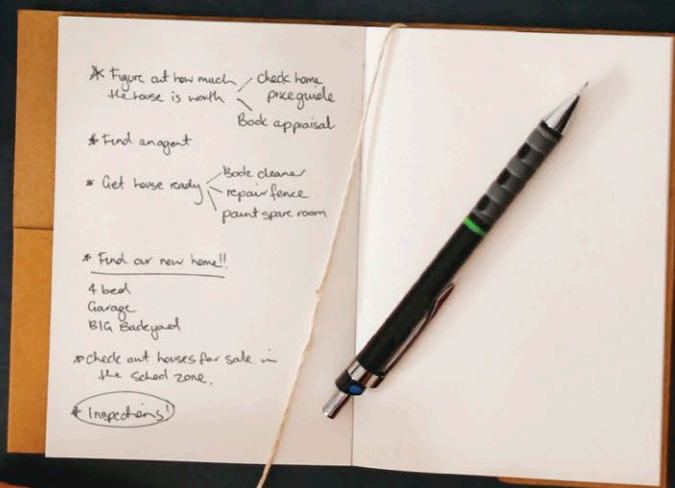 * Figure out how much
the house is worth
check home
price guide
Book appraisal
* Find an agent
* Get house ready
Book cleaner
repair fence
paint spare room
* Find our new home!!
4 bed
Garage
BIG Backyard
* Check out houses for sale in
the school zone.
* Inspections!